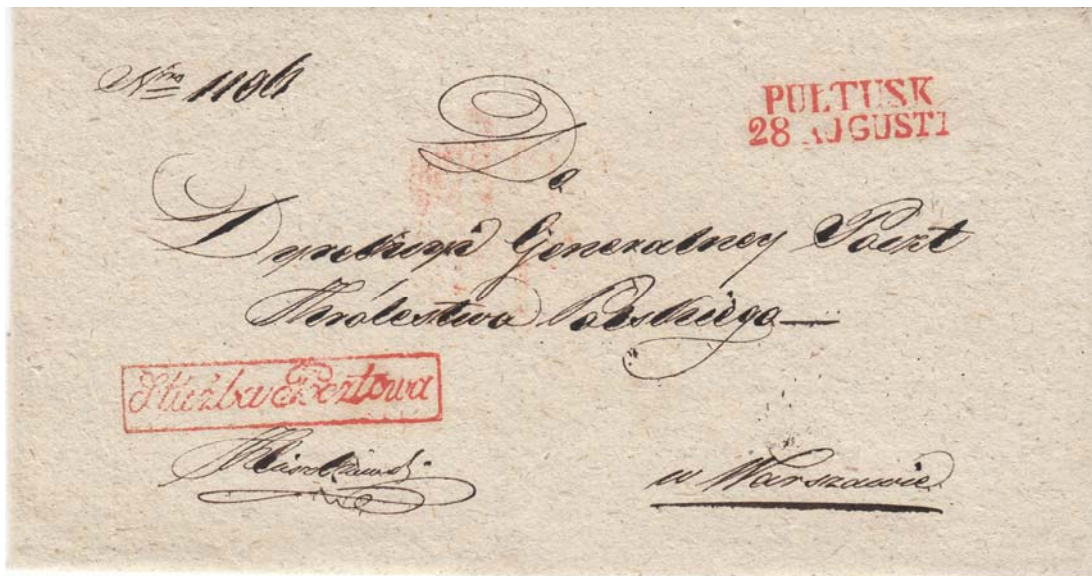 Nro 1196
PUŁTUSK
28 AUGUSTI
Do
Dyrekcyi Generalney Poczt
Królestwa Polskiego
Służba Pocztowa
w Warszawie